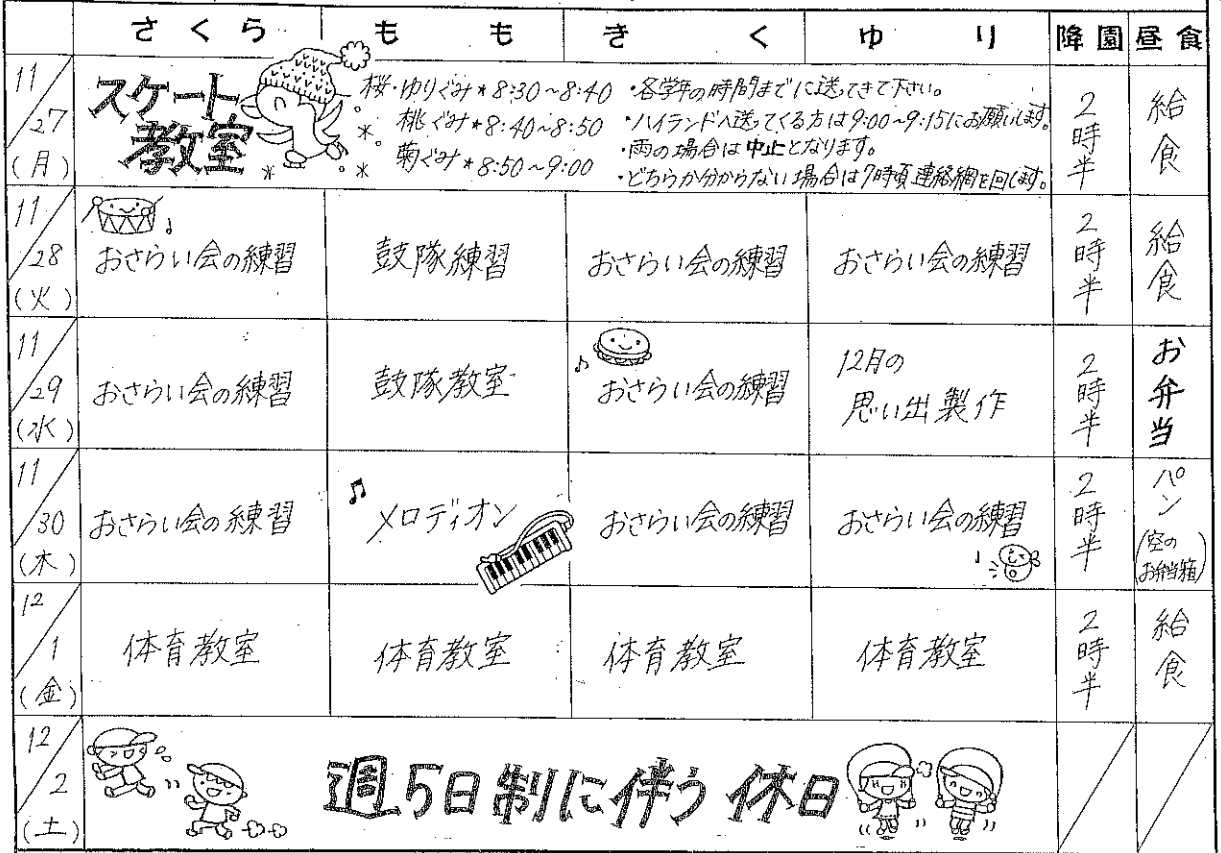 さくら もも きく ゆり 降園 昼食
11/27(月)
スケート教室
桜・ゆりぐみ*8:30~8:40
桃ぐみ*8:40~8:50
菊ぐみ*8:50~9:00
・各学年の時間までに送ってきて下さい。
・ハイランドへ送ってくる方は9:00~9:15にお願いします。
・雨の場合は中止となります。
・どちらか分からない場合は7時頃連絡網を回します。
2時半 給食
11/28(火) おさらい会の練習 鼓隊練習 おさらい会の練習 おさらい会の練習 2時半 給食
11/29(水) おさらい会の練習 鼓隊教室 おさらい会の練習 12月の
思い出製作 2時半 お弁当
11/30(木) おさらい会の練習 メロディオン おさらい会の練習 おさらい会の練習 2時半 パン
(空の
お弁当箱)
12/1(金) 体育教室 体育教室 体育教室 体育教室 2時半 給食
12/2(土) 週5日制に伴う休日